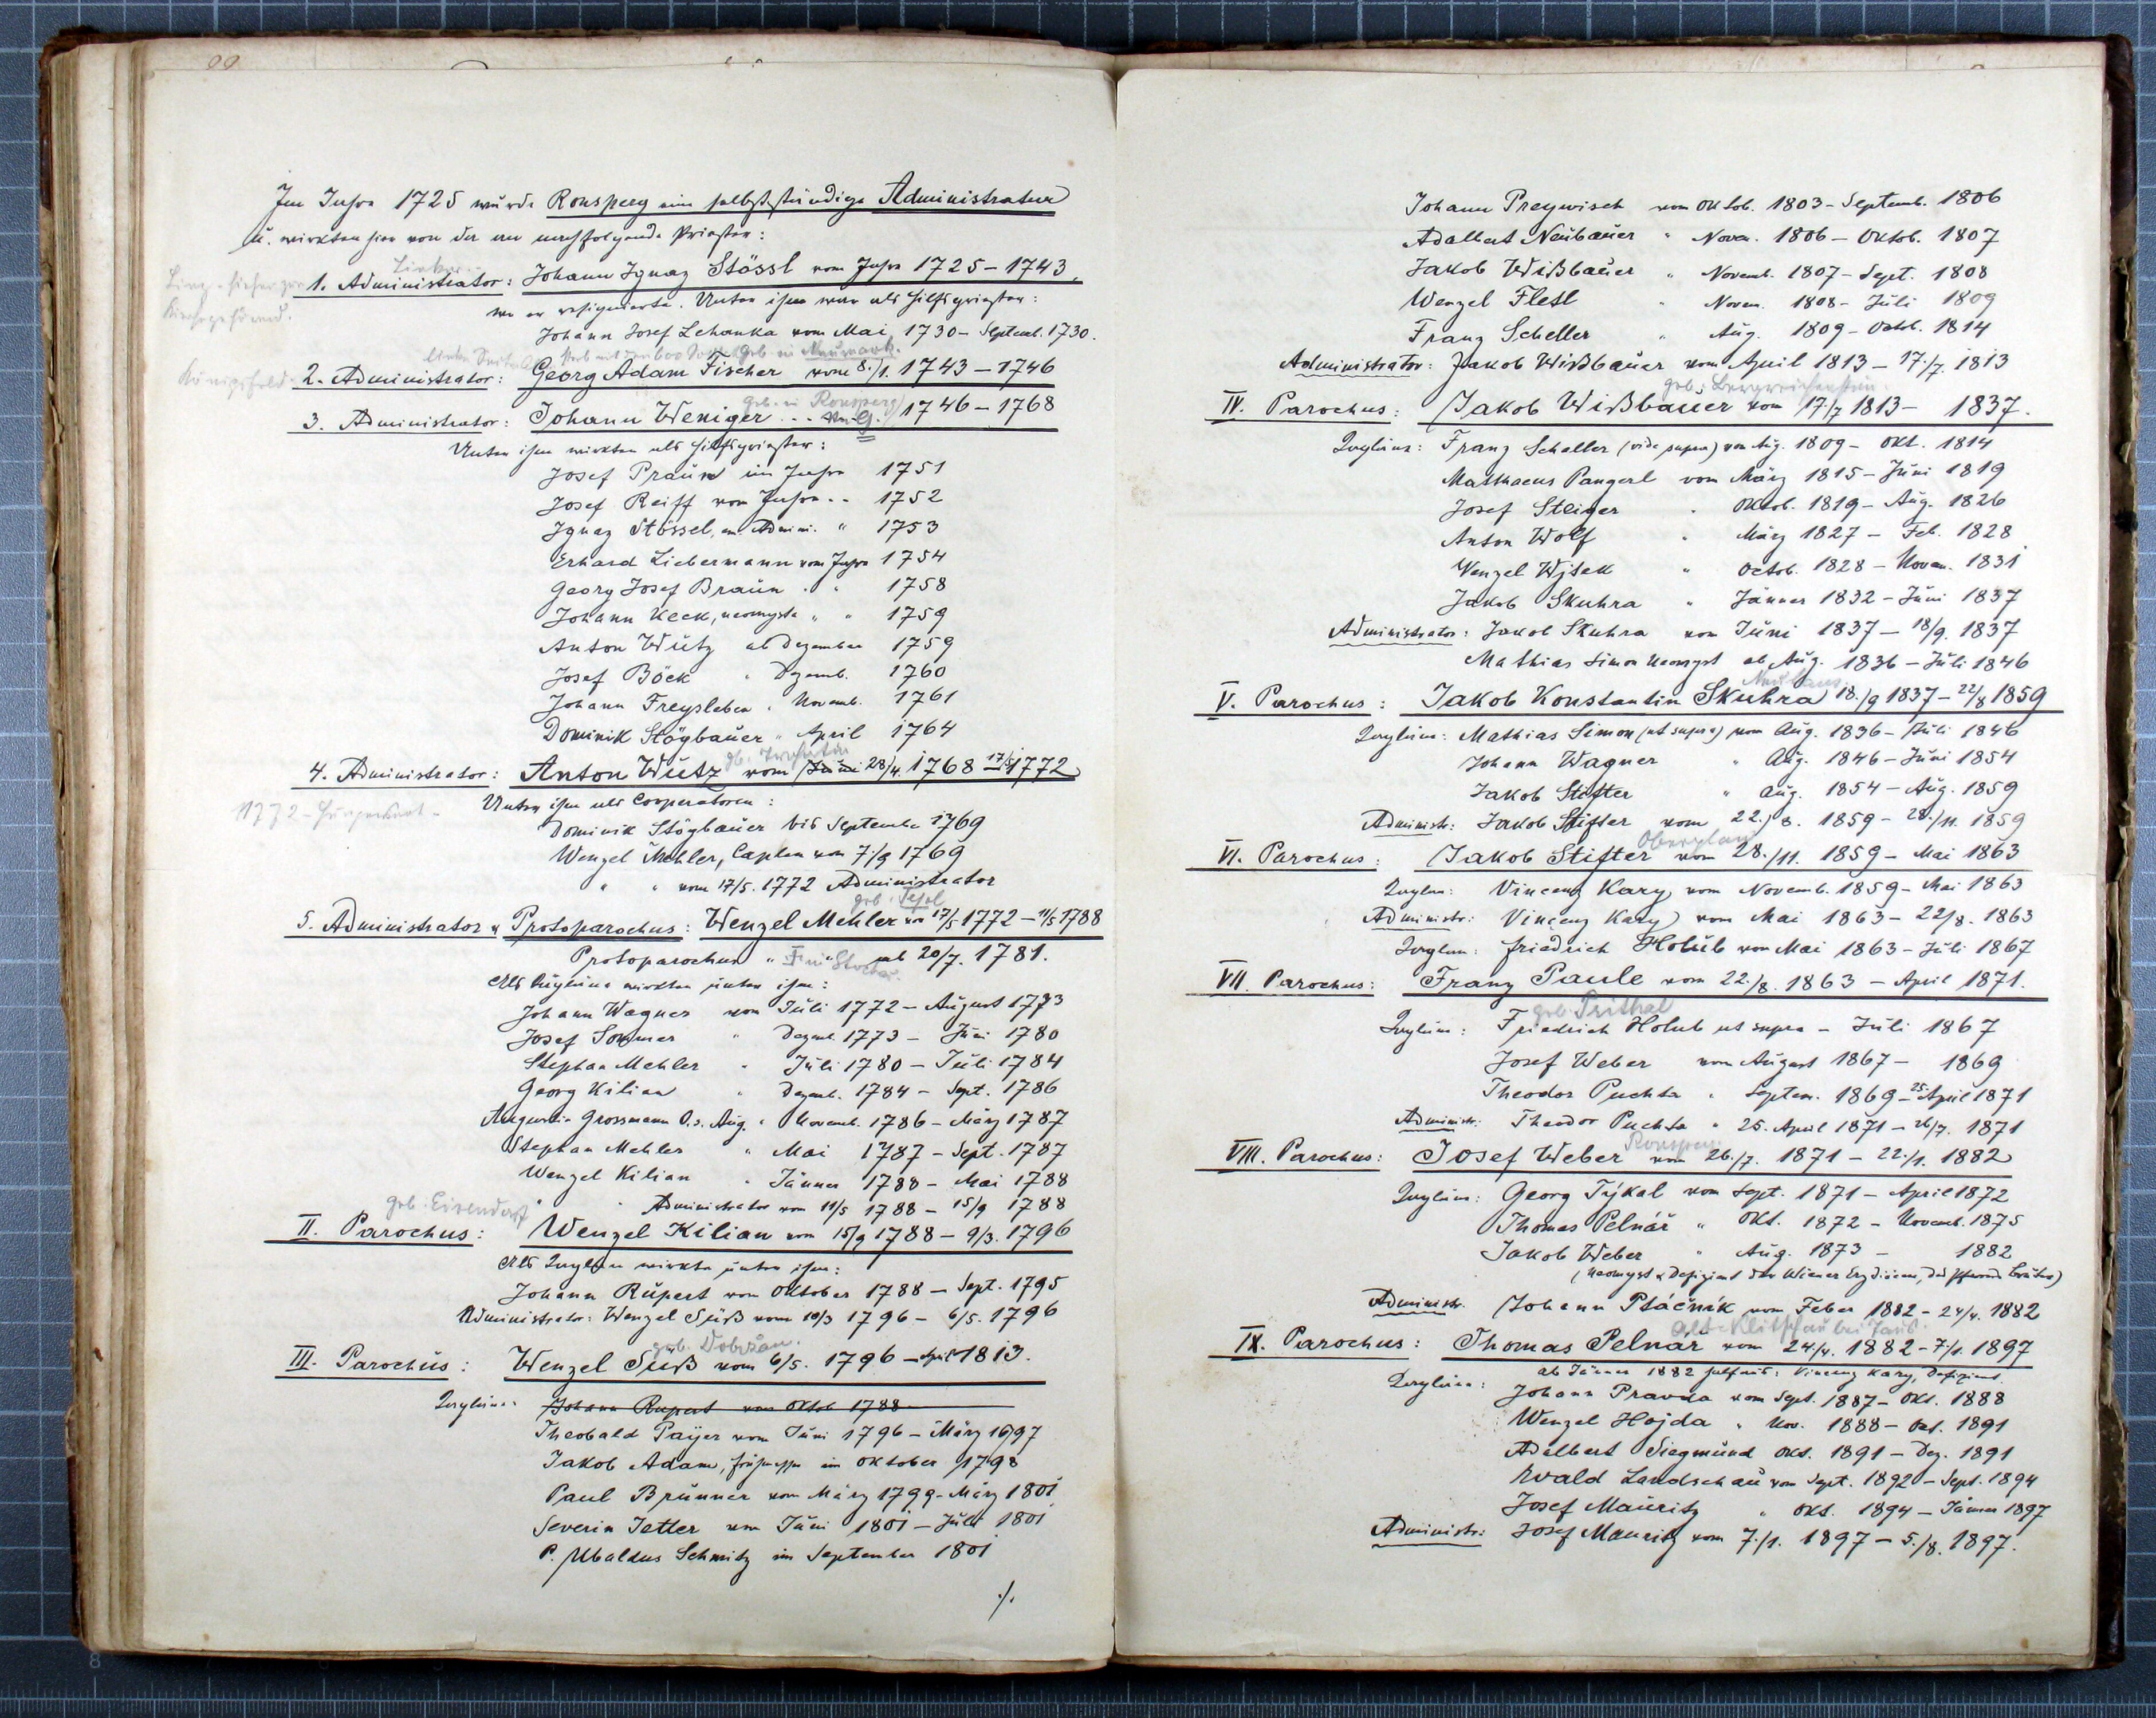 Im Jahre 1725 wurde Ronsperg eine selbstständige Administratur
u. wirkten hier von da an nachfolgende Priester:
1. Administrator: Johann Ignaz Stössl vom Jahre 1725 - 1743,
wo er resignierte. Unter ihm war als Hilfspriester:
Johann Josef Lehanka vom Mai 1730 - Septemb. 1730.
geb. in Neumark.
Königsfeld
2. Administrator: Georg Adam Fischer vom 8./1. 1743 - 1746
geb. in Ronsperg
3. Administrator: Johann Weniger 1746 - 1768
Unter ihm wirkten als Hilfspriester:
Josef Praun im Jahre 1751
Josef Reiff vom Jahre „ 1752
Ignaz Stössel, em. Admini. " 1753
Erhard Liebermann vom Jahre 1754
Georg Josef Braun " " 1758
Johann Keck, neomysta " " 1759
Anton Wutz ab Dezember 1759
Josef Böck " Dezemb. 1760
Johann Freysleben " Novemb. 1761
Dominik Stögbauer " April 1764
4. Administrator: Anton Wutz vom Juni 28/4. 1768 17/5 1772
1772 -
Unter ihm als Cooperatoren:
Dominik Stögbauer bis September 1769
Wenzel Mehler, Caplan vom 7./9 1769
" " vom 17/5. 1772 Administrator
5. Administrator u Protoparochus: Wenzel Mehler von 17/5 1772 - 11/5 1788
Protoparochus " " ab 20/7. 1781.
Als Kapläne wirkten unter ihm:
Johann Wagner vom Juli 1772 - August 1773
Josef Sommer " Dezemb. 1773 - Juni 1780
Stephan Mehler " Juli 1780 - Juli 1784
Georg Kilian " Dezemb. 1784 - Sept. 1786
Augustin Grossmann O.s. Aug. " Novemb. 1786 - März 1787
Stephan Mehler " Mai 1787 - Sept. 1787
Wenzel Kilian " Jänner 1788 - Mai 1788
" " Administrator vom 11/5 1788 - 15/9 1788
geb. Eisendorf
II. Parochus: Wenzel Kilian vom 15/9 1788 - 9/3. 1796
Als Kaplan wirkte unter ihm:
Johann Rupert vom Oktober 1788 - Sept. 1795
Administrator: Wenzel Süß vom 10/3 1796 - 6/5. 1796
geb. Dobrzan.
III. Parochus: Wenzel Süß vom 6/5. 1796 - April 1813.
Kapläne: Johann Rupert vom Oktob 1788
Theobald Payer vom Juni 1796 - März 1797
Jakob Adam, im Oktober 1798
Paul Brunner vom März 1799 - März 1801
Severin Jetter vom Juni 1801 - Juli 1801
P. Ubaldus Schmitz im September 1801
./.
Johann Preywisch vom Oktob. 1803 - Septemb. 1806
Adalbert Neubauer " Novem. 1806 - Oktob. 1807
Jakob Wißbauer " Novemb. 1807 - Sept. 1808
Wenzel Fletl " Novem. 1808 - Juli 1809
Franz Scheller " Aug. 1809 - Octob. 1814
Administrator: Jakob Wißbauer vom April 1813 - 17./7. 1813
geb: Bergreichenstein.
IV. Parochus: Jakob Wißbauer vom 17./7 1813 - 1837.
Kapläne: Franz Scheller (vide supra) von Aug. 1809 - Okt. 1814
Matthaeus Pangerl vom März 1815 - Juni 1819
Josef Steiger " Oktob. 1819 - Aug. 1826
Anton Wolf " März 1827 - Feb. 1828
Wenzel Wjtek " Octob. 1828 - Novem. 1831
Jakob Skuhra " Jänner 1832 - Juni 1837
Administrator: Jakob Skuhra vom Juni 1837 - 18/9. 1837
Mathias Simon Neomyst ab Aug. 1836 - Juli 1846
Neuhaus.
V. Parochus: Jakob Konstantin Skuhra 18./9 1837 - 22/8 1859
Kapläne: Mathias Simon (ut supra) vom Aug. 1836 - Juli 1846
Johann Wagner " Aug. 1846 - Juni 1854
Jakob Stifter " Aug. 1854 - Aug. 1859
Administr: Jakob Stifter vom 22./8. 1859 - 28./11. 1859
Oberplan
VI. Parochus: Jakob Stifter vom 28./11. 1859 - Mai 1863
Kaplan: Vincenz Kary vom Novemb. 1859 - Mai 1863
Administr: Vincenz Kary vom Mai 1863 - 22/8. 1863
Kaplan: Friedrich Holub von Mai 1863 - Juli 1867
VII. Parochus: Franz Paule vom 22./8. 1863 - April 1871.
geb. Prithal
Kapläne: Friedrich Holub ut supra - Juli 1867
Josef Weber vom August 1867 - 1869
Theodor Puchta " Septem. 1869 - 25. April 1871
Administr: Theodor Puchta " 25. April 1871 - 26/7. 1871
Ronsperg.
VIII. Parochus: Josef Weber vom 26./7. 1871 - 22./1. 1882
Kapläne: Georg Týkal vom Sept. 1871 - April 1872
Thomas Pelnář " Okt. 1872 - Novemb. 1875
Jakob Weber " Aug. 1873 - 1882
(Neomyst & Defizient der Wiener Erzdiöcese, des Pfarrers Bruder)
Administr. Johann Ptáčník vom Feber 1882 - 24/4. 1882
Alt-Klitschau bei Taus.
IX. Parochus: Thomas Pelnář vom 24./4. 1882 - 7/1. 1897
ab Jänner 1882 Vincenz Kary, Defizient.
Kapläne: Johann Pravda vom Sept. 1887 - Okt. 1888
Wenzel Hojda " Nov. 1888 - Okt. 1891
Adalbert Siegmund Okt. 1891 - Dez. 1891
Ewald Landschau vom Sept. 1892 - Sept. 1894
Josef Mauritz " Okt. 1894 - Jänner 1897
Administr: Josef Mauritz vom 7./1. 1897 - 5./8. 1897.